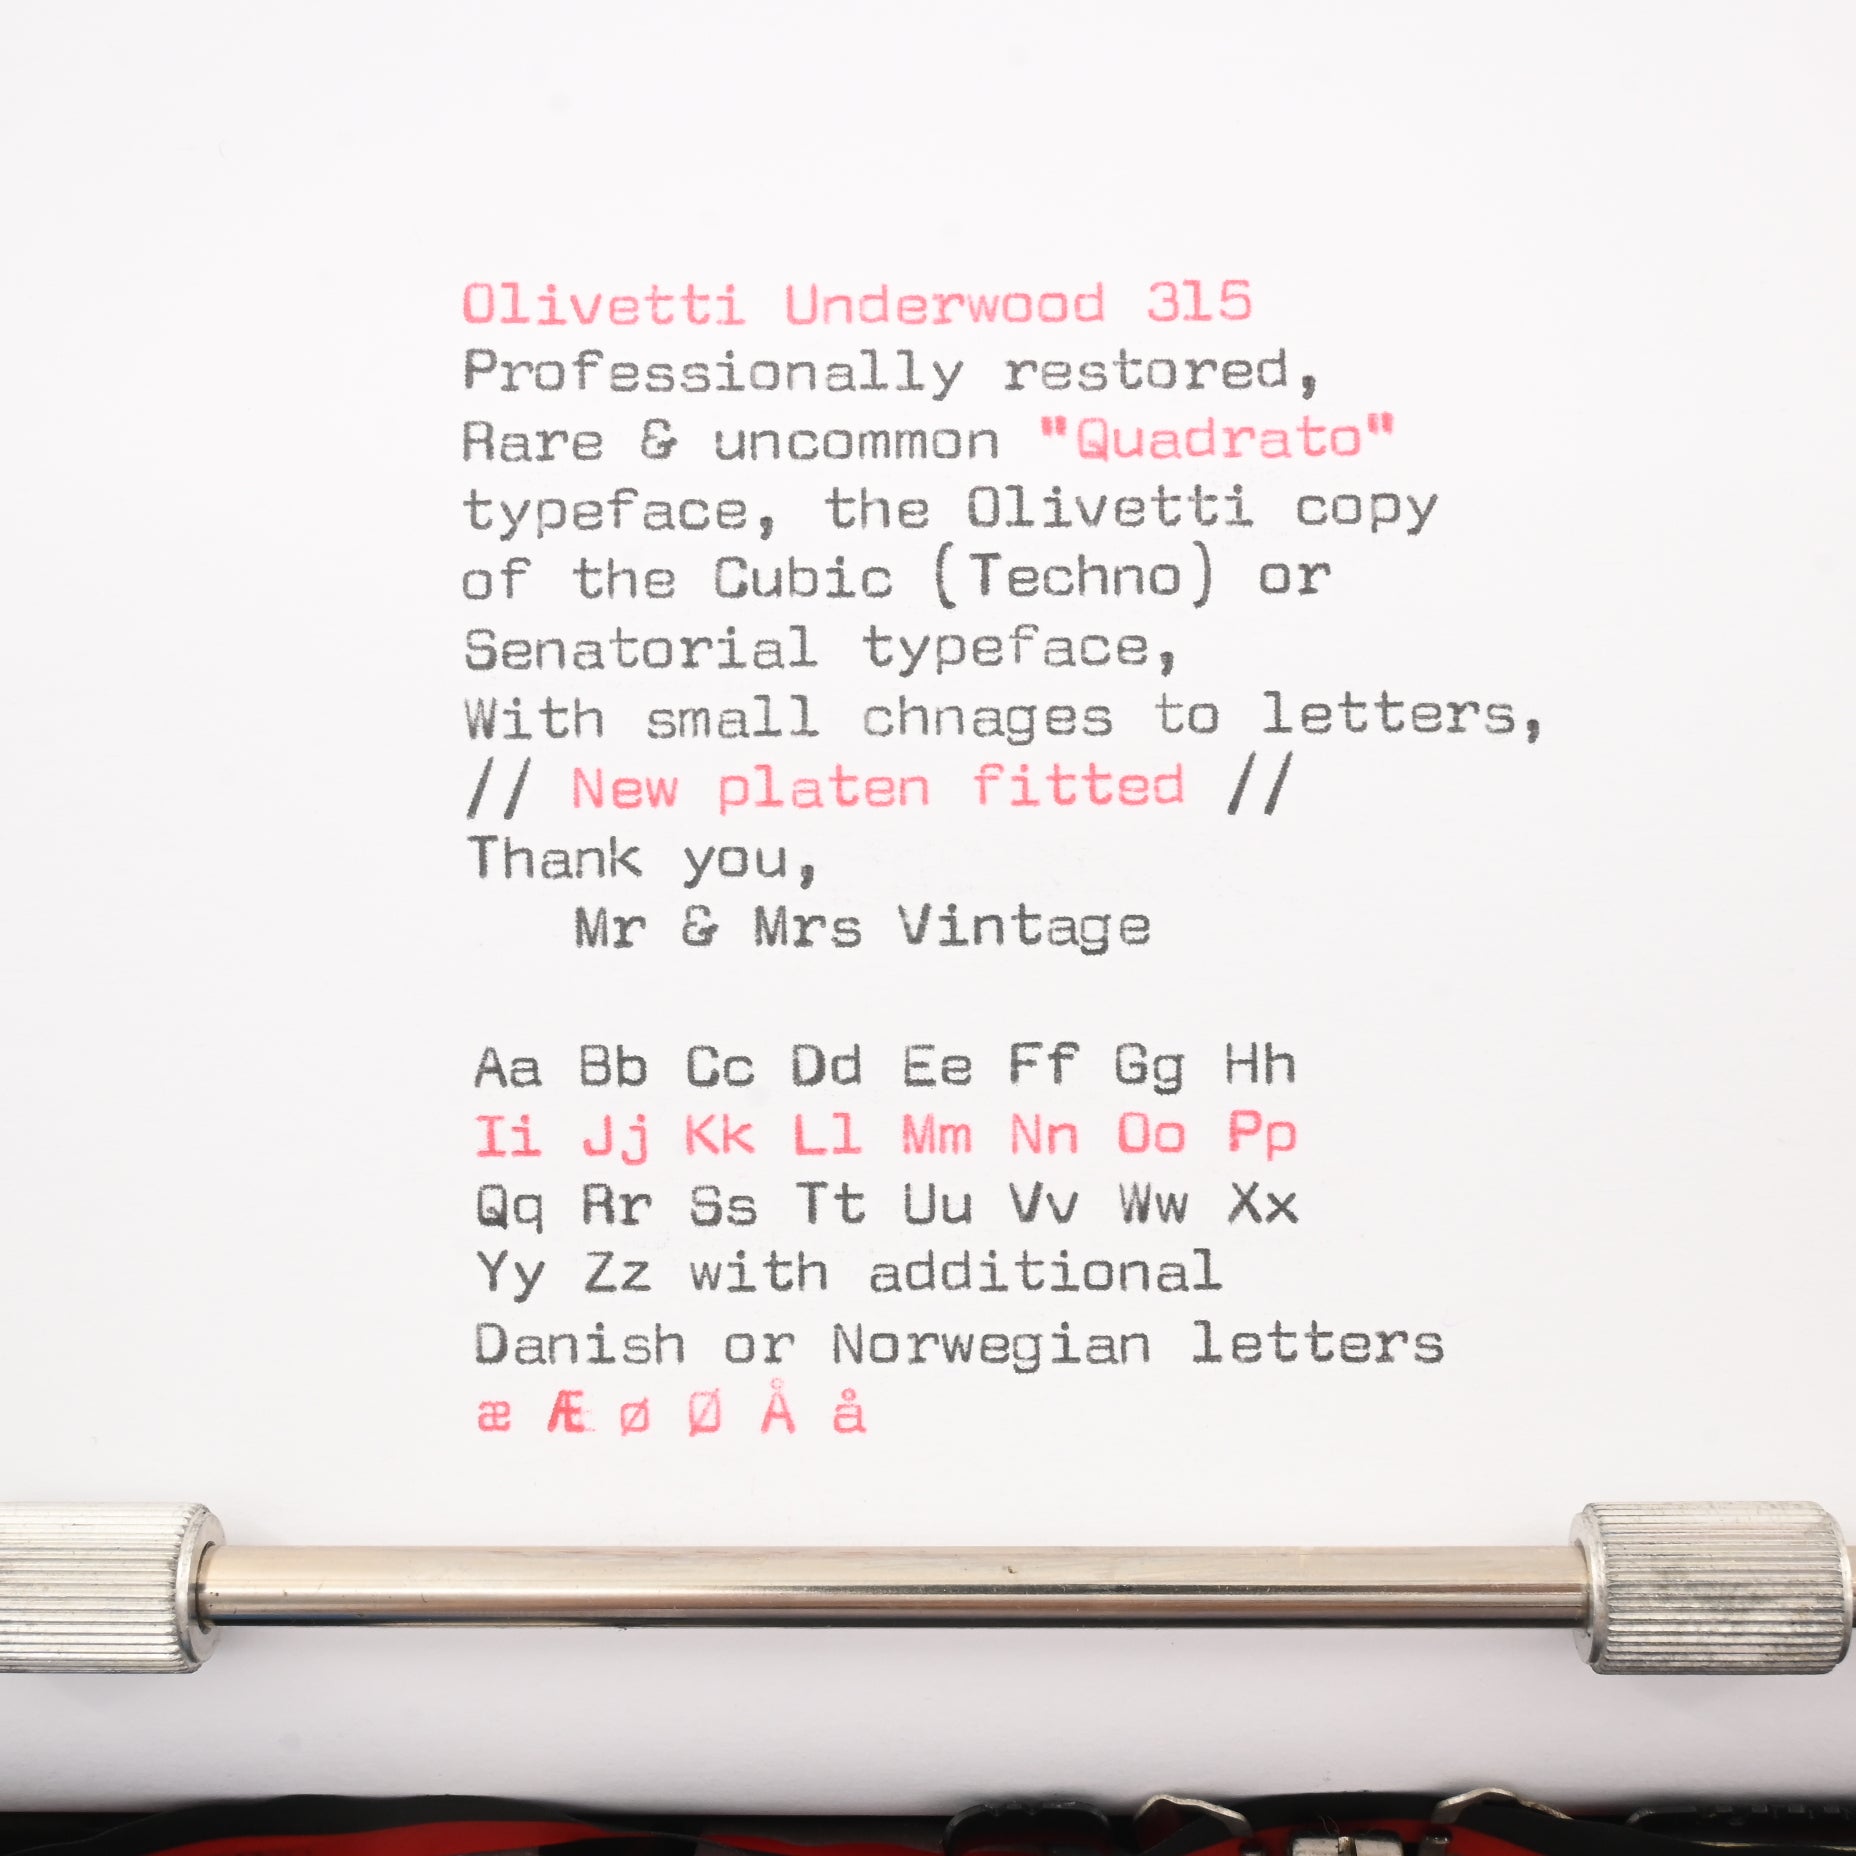 Olivetti Underwood 315
Professionally restored,
Rare & uncommon "Quadrato"
typeface, the Olivetti copy
of the Cubic (Techno) or
Senatorial typeface,
With small chnages to letters,
// New platen fitted //
Thank you,
Mr & Mrs Vintage
Aa Bb Cc Dd Ee Ff Gg Hh
Ii Jj Kk Ll Mm Nn Oo Pp
Qq Rr Ss Tt Uu Vv Ww Xx
Yy Zz with additional
Danish or Norwegian letters
æ Æ ø Ø Å å